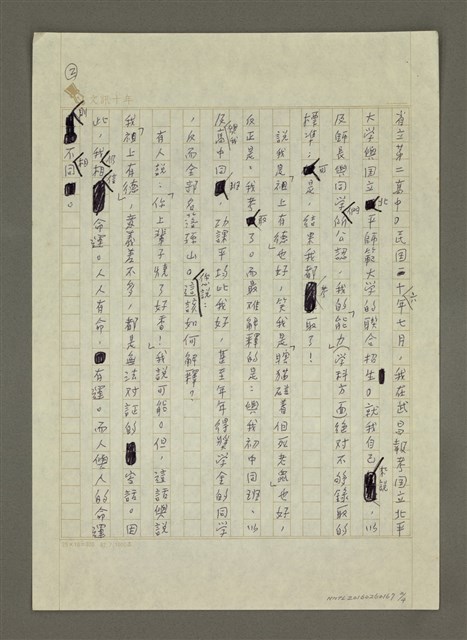 ②
文訊十年
省立第二高中。民國二十年七月，我在武昌報考國立北平
大学與國立北平師範大学的聯合招生。就我自己來說，以
及師長與同学們所公認，我的「能力」（学科方面絕對不夠錄取的
標準；可是，結果我都考取了！
說我是「祖上有德」也好，笑我是「瞎貓碰着個死老鼠」也好，
反正是，我考取了。而最难解释的是：與我初中同班，以
及與我高中同班，功課平均比我好，甚至年年得獎学金的同学
，反而全部名落孫山。你說：這該如何解釋？
有人說：「你上輩子燒了好香！」我說可能。但，這話與說
我「祖上有德」，意義差不多，都是無法对証的空話。因
此，我相信命運。人人有命，有運。而人個人的命運
則不相同。
NMTL20160260167